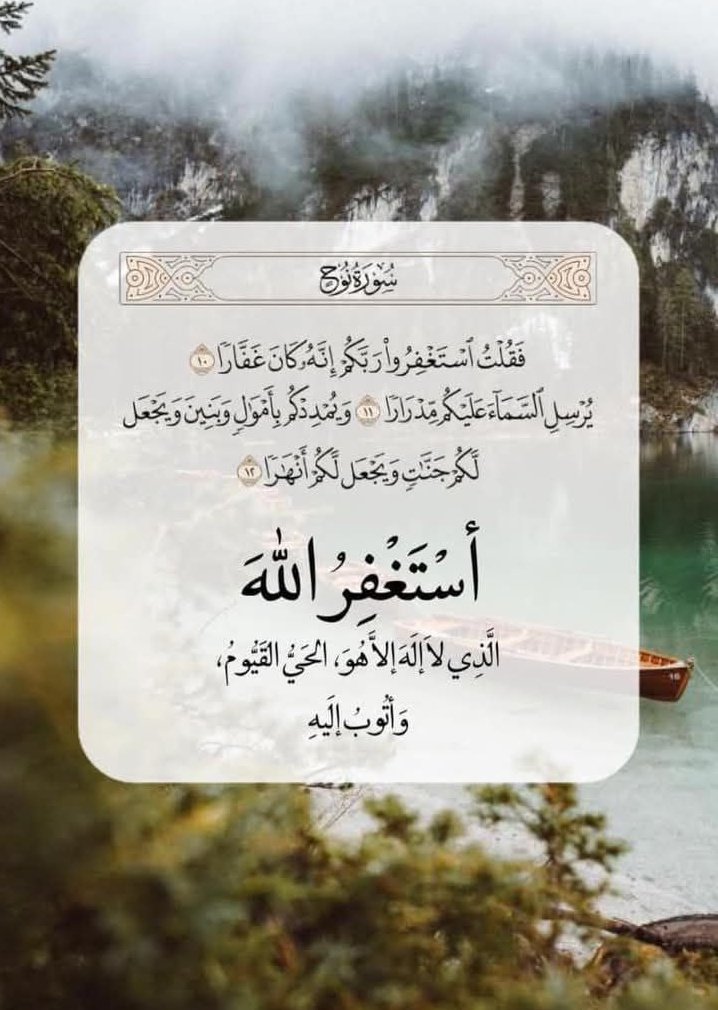 سُورَةُ نُوحٍ
فَقُلْتُ ٱسْتَغْفِرُوا۟ رَبَّكُمْ إِنَّهُۥ كَانَ غَفَّارًا ١٠
يُرْسِلِ ٱلسَّمَآءَ عَلَيْكُم مِّدْرَارًا ١١ وَيُمْدِدْكُم بِأَمْوَٰلٍ وَبَنِينَ وَيَجْعَل
لَّكُمْ جَنَّٰتٍ وَيَجْعَل لَّكُمْ أَنْهَٰرًا ١٢
أَسْتَغْفِرُ اللهَ
الَّذِي لاَ إلَهَ إلاَّ هُوَ، الحَيُّ القَيُّومُ،
وَأتُوبُ إلَيهِ
16